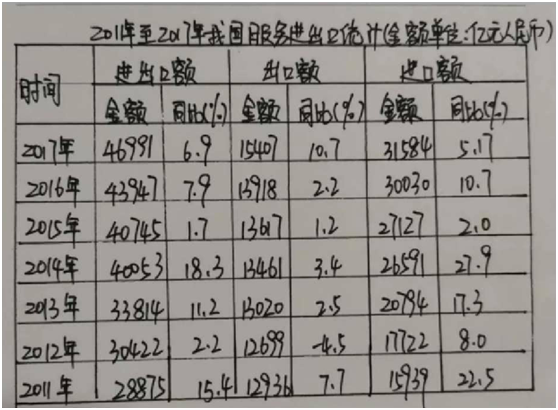 2011年至2017年我国服务进出口统计(金额单位:亿元人民币)
时间 进出口额 出口额 进口额
金额 同比(%) 金额 同比(%) 金额 同比(%)
2017年 46991 6.9 15407 10.7 31584 5.17
2016年 43947 7.9 13918 2.2 30030 10.7
2015年 40745 1.7 13617 1.2 27127 2.0
2014年 40053 18.3 13461 3.4 26591 27.9
2013年 33814 11.2 13020 2.5 20794 17.3
2012年 30422 2.2 12699 -4.5 17722 8.0
2011年 28875 15.4 12936 7.7 15939 22.5